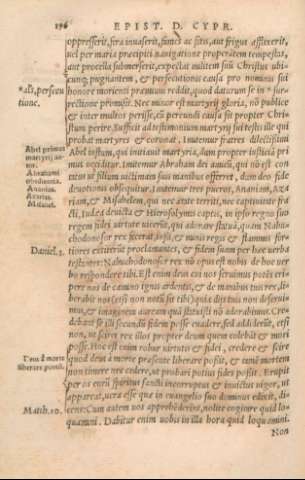 196 EPIST. D. CYPR.
oppresserit, fera inuaserit, fames ac sitis, aut frigus afflixerit,
uel per maria præcipiti nauigatione properantem tempestas,
aut procella submerserit, expectat militem suũ Christus ubi-
cunq; pugnantem, & persecutionis causa pro nominis sui
*ali, persecu
tione.
honore morienti præmium reddit, quod daturum se in * sur-
rectione promisit. Nec minor est martyrij gloria, nõ publice
& inter multos perisse, cũ pereundi causa sit propter Chri-
stum perire. Sufficit ad testimonium martyrij sui testis ille qui
probat martyres & coronat. Imitemur fratres dilectissimi
Abel primus
martyrij au-
tor.
Abel iustum, qui initiauit martyria, dum propter iusticiã pri-
mus occiditur. Imitemur Abraham dei amicũ, qui nõ est con
Abrahami
obedientia.
tatus ut filium uictimam suis manibus offerret, dum deo fide
Ananias.
deuotionis obsequitur. Imitemur tres pueros, Ananiam, Aza
Azarias.
Misael.
riam, & Misahelem, qui nec ætate territi, nec captiuitate fra
cti, Iudæa deuicta & Hierosolymis captis, in ipso regno suo
regem fidei uirtute uicerũt, qui adorare statuã, quam Nabu-
chodonosor rex fecerat iussi, & minis regis & flammis for
Daniel. 3.
tiores extiterũt proclamantes, & fidem suam per hæc uerba
testantes: Nabuchodonosor rex nõ opus est nobis de hoc uer
bo respondere tibi. Est enim deus cui nos seruimus potẽs eri-
pere nos de camino ignis ardentis, & de manibus tuis rex, li-
berabit nos (etsi non notũ sit tibi) quia dijs tuis non deserui-
mus, & imaginem auream quã statuisti nõ adorabimus. Cre-
debant se illi secundũ fidem posse euadere, sed addiderũt, etsi
non, ut sciret rex illos propter deum quem colebãt & mori
posse. Hoc est enim robur uirtutis & fidei, credere & scire
Deus à morte
liberare potest.
quod deus à morte præsente liberare possit, & tamẽ mortem
non timere nec cedere, ut probari potius fides possit. Erupit
per os eorũ spiritus sancti incorruptus & inuictus uigor, ut
appareat, uera esse quæ in euangelio suo dominus edicit, di-
Matth. 10.
cens: Cum autem uos apprehẽderint, nolite cogitare quid lo
quamini. Dabitur enim uobis in illa hora quid loquamini.
Non